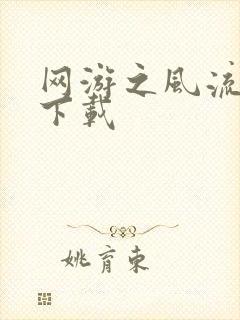 网游之风流
下载
姚育东